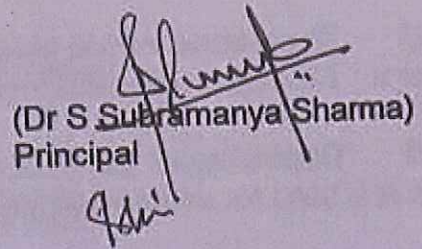 (Dr S Subramanya Sharma)
Principal